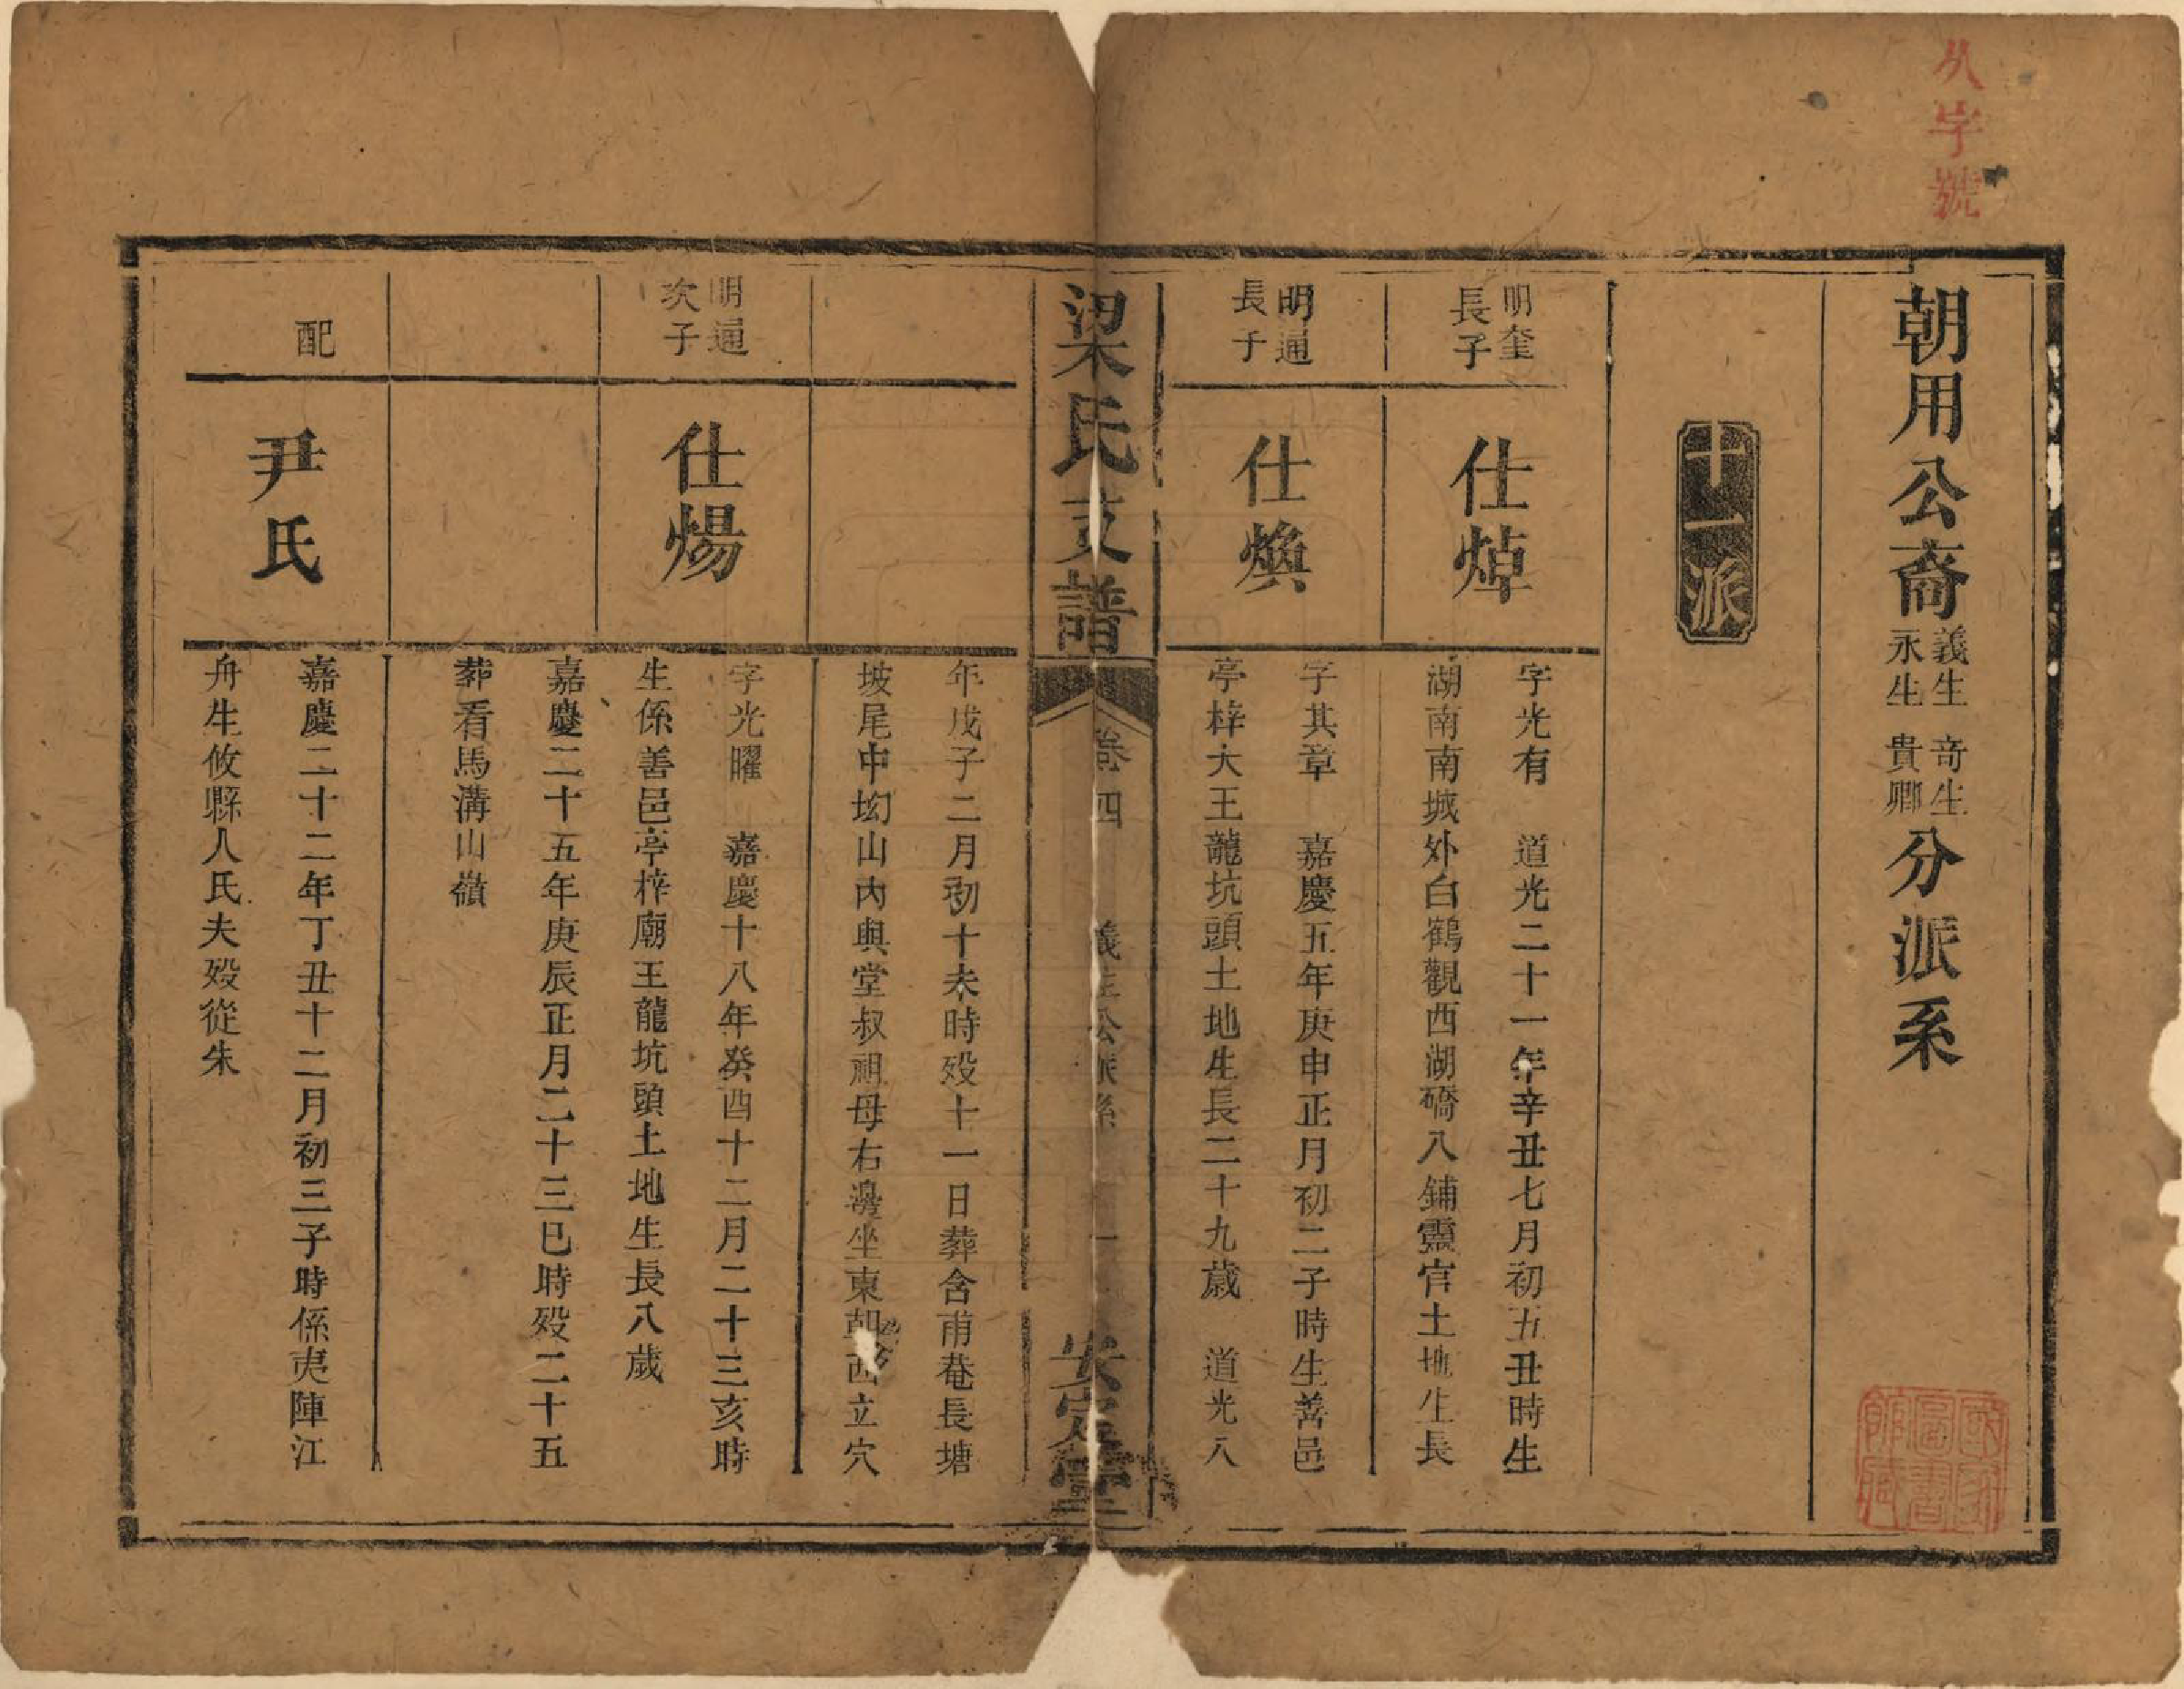 朝用公裔義生永生奇生貴卿分派系
十一派
明奎長子
仕焯
字光有 道光二十一年辛丑七月初五丑時生
湖南南城外白鶴觀西湖礄八鋪靈官土地生長
明通長子
仕煥
字其章 嘉慶五年庚申正月初二子時生善邑
亭梓大王龍坑頭土地生長二十九歲 道光八
梁氏支譜
卷四
義生公派系
一
安定堂
年戊子二月初十未時歿十一日葬含甫菴長塘
坡尾中㘭山內與堂叔祖母右邊坐東朝西立穴
明通次子
仕煬
字光曜 嘉慶十八年癸酉十二月二十三亥時
生係善邑亭梓廟王龍坑頭土地生長八歲
嘉慶二十五年庚辰正月二十三巳時歿二十五
葬看馬溝山嶺
配
尹氏
嘉慶二十二年丁丑十二月初三子時係夷陣江
舟生攸縣人氏夫歿從朱
字號
國家圖書館藏